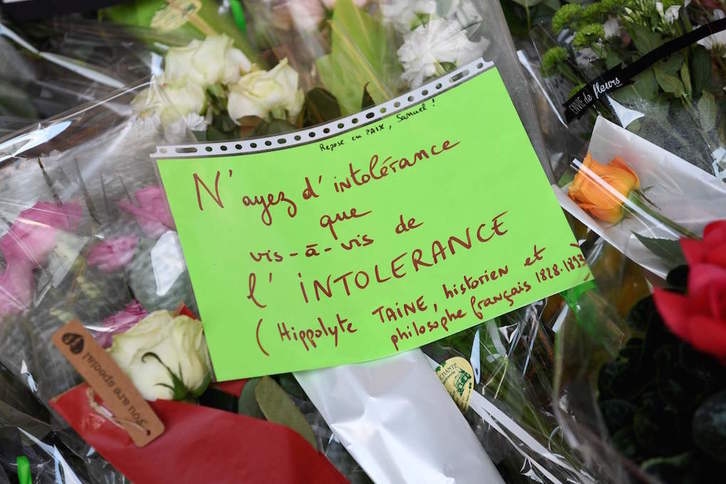 Repose en PAIX, Samuel !
N'ayez d'intolérance
que
vis-à-vis de
l'INTOLERANCE
(Hippolyte TAINE, historien et
philosophe français 1828-1893)
you are special
de fleurs